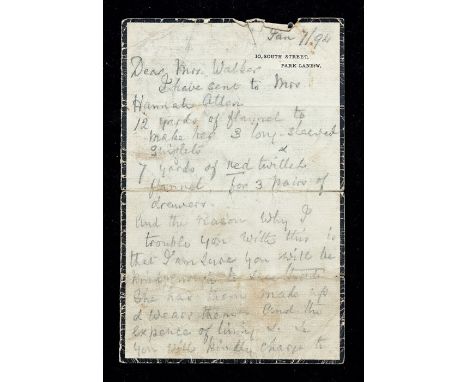 Jan 7/92
10, SOUTH STREET,
PARK LANE. W.
Dear Mrs. Walker
I have sent to Mrs
Hannah Allen
12 yards of flannel to
make her 3 long-sleeved
&
7 yards of red twilled
flannel for 3 pairs of
drawers.
And the reason why I
trouble you with this is
that I am sure you will be
kind enough to see that
She has them made up
& wears them. And the
expence of
you will kindly charge to